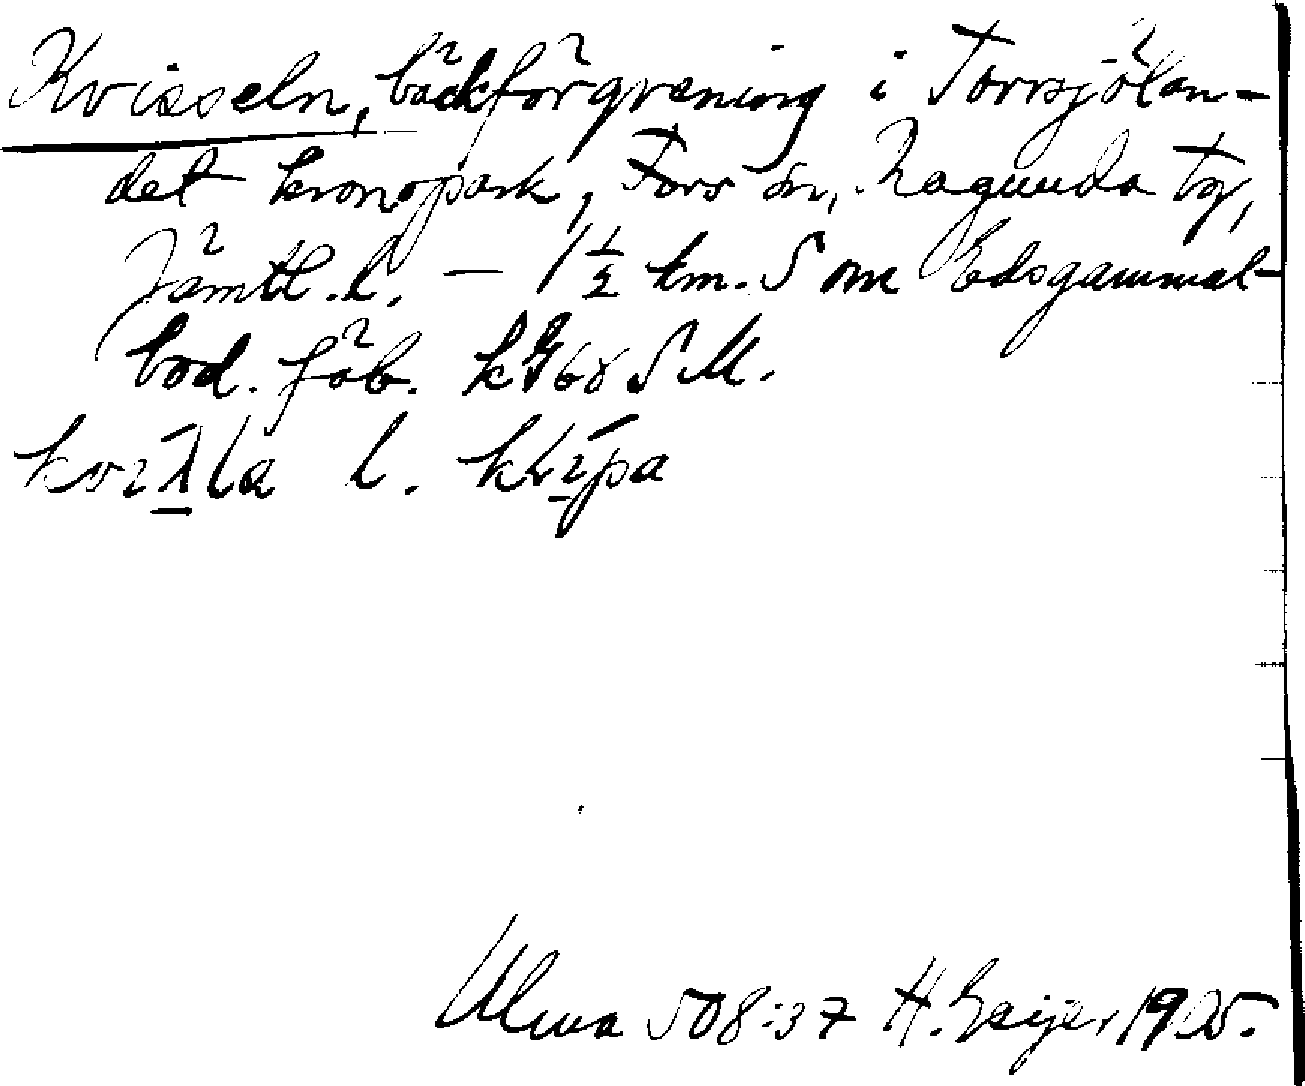 Kvisseln, bäckförgrening i Torrsjölan-
det kronopark, Fors sn, Ragunda tg,
Jämtl. l. – 1½ km. S om Edsgammal-
bod. fäb. S M.
l.
Ulma 508:37 H. Geijer 1925.